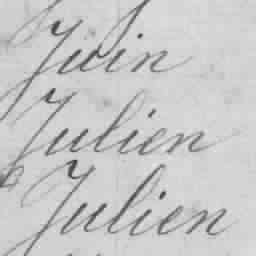 Juin
Julien
Julien